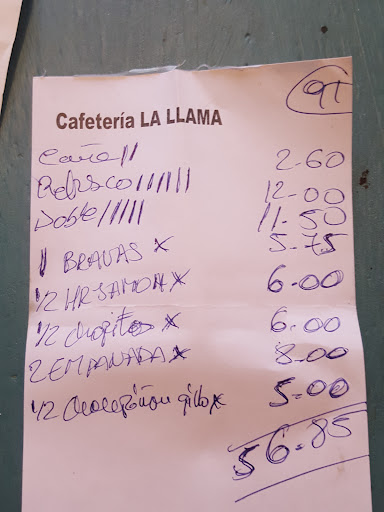 91
Cafetería LA LLAMA
Caña // 2-60
Refresco ////// 12-00
Doble ///// 11-50
1 BRAVAS x 5-75
1/2 HRJAMON x 6-00
1/2 chopitos x 6-00
2 EMPANADA x 8-00
1/2 x 5-00
56-85